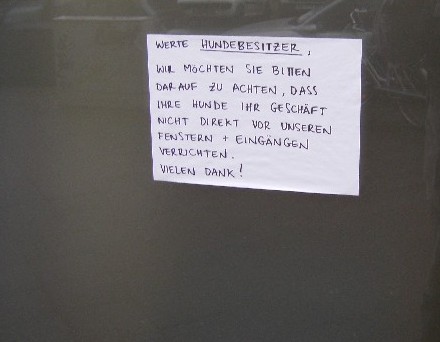 WERTE HUNDEBESITZER,
WIR MÖCHTEN SIE BITTEN
DARAUF ZU ACHTEN, DASS
IHRE HUNDE IHR GESCHÄFT
NICHT DIREKT VOR UNSEREN
FENSTERN + EINGÄNGEN
VERRICHTEN.
VIELEN DANK!